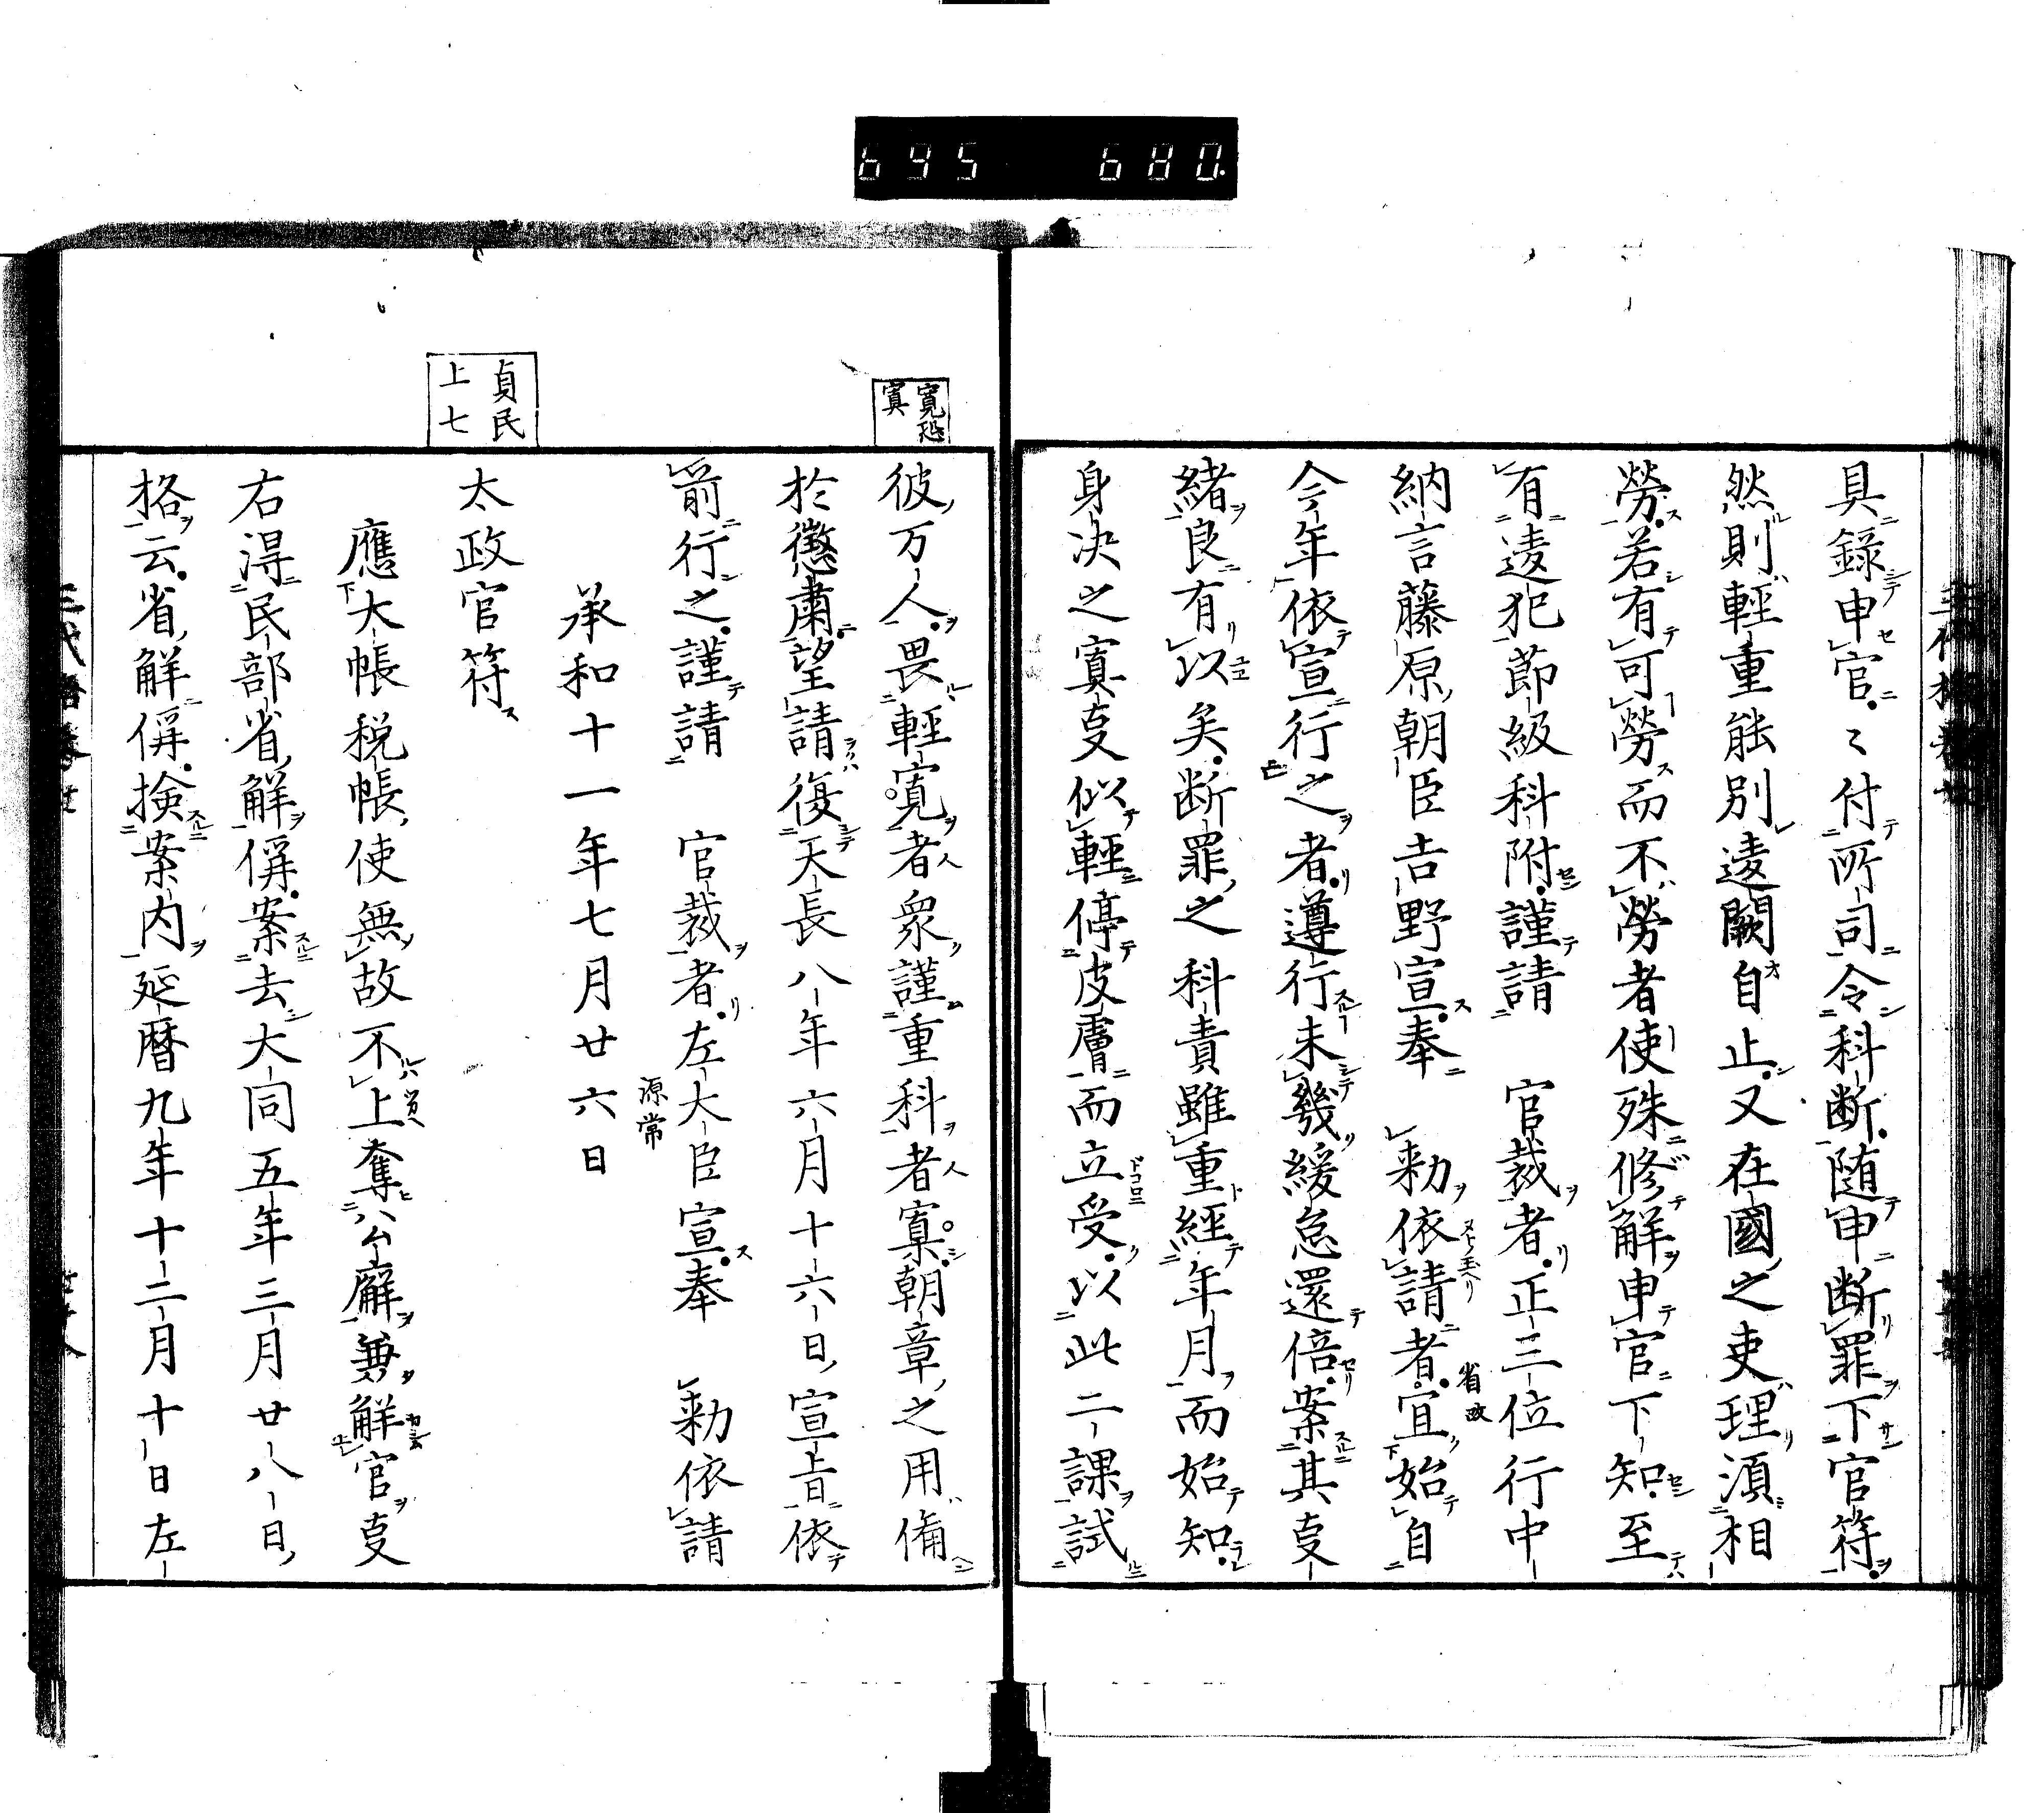 695 680.
具錄申官〻付所司令科断随申断罪下官符
然則輕重能別逺闕自止又在國之吏理湏相
勞若有可勞而不勞者使殊修解申官下知至
有逺犯節級科附謹請 官裁者正三位行中
納言藤原朝臣吉野宣奉 勅依請者宜始自
省政
今年依宣行之者遵行未幾緩怠還倍案其㕝
緒良有以矣断罪之科責雖重經年月而始知
身决之寘㕝似輕停皮膚而立受以此二課試
寛恐
寘
彼万人畏輕寛者衆謹重科者寡朝章之用備
於懲肅望請復天長八年六月十六日宣旨依
前行之謹請 官裁者左大臣宣奉 勅依請
源常
承和十一年七月廿六日
貞民
上七
太政官符
應大帳税帳使無故不上奪公廨兼解官㕝
右得民部省解偁案去大同五年三月廿八日
格云省解偁撿案内延暦九年十二月十日左